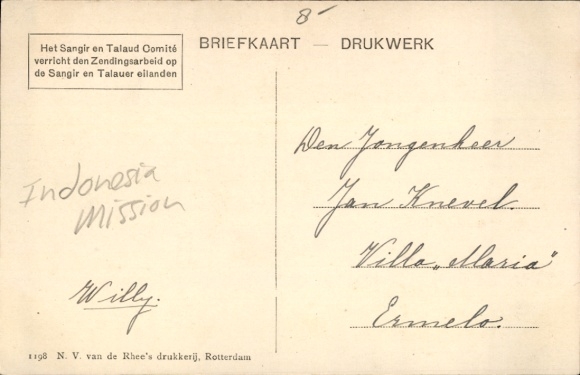 8-
BRIEFKAART — DRUKWERK
Het Sangir en Talaud Comité
verricht den Zendingsarbeid op
de Sangir en Talauer eilanden
Den Jongenheer
Jan Knevel.
Villa „Maria"
Ermelo.
Indonesia
Mission
Willy.
1198 N. V. van de Rhee's drukkerij, Rotterdam